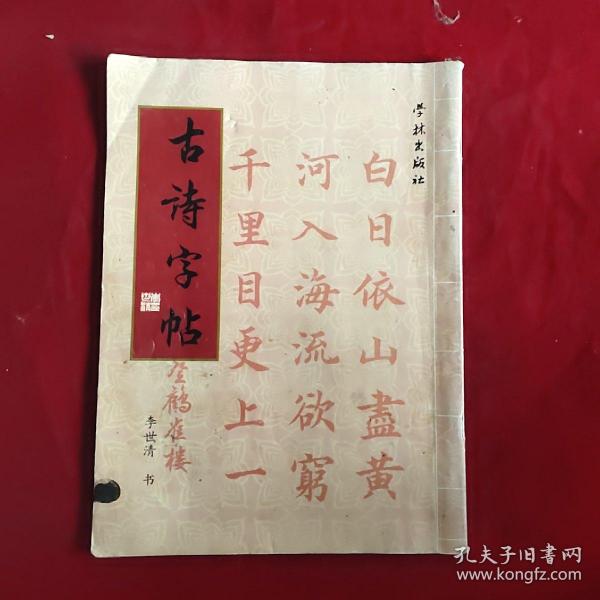 学林出版社
白日依山盡黄
河入海流欲窮
千里目更上一
古诗字帖
登鶴雀楼
李世清 书
孔夫子旧书网
www.kongfz.com